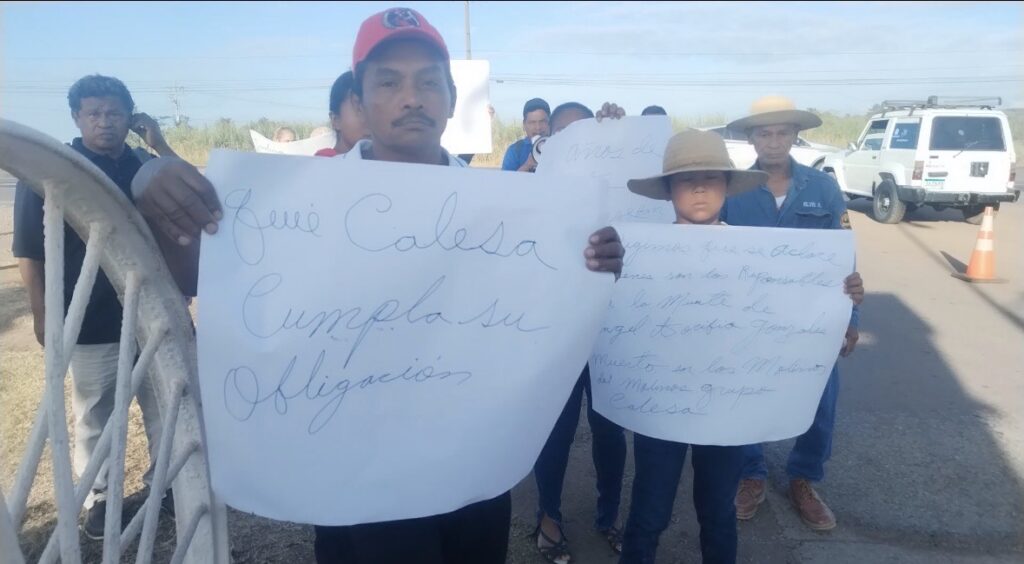 Que Calesa
Cumpla su
Obligación
años de
Exigimos que se aclare
quienes son los Reponsables
la Muerte de
Angel González
Muerto en los Molinos
del Molinos grupo
Calesa